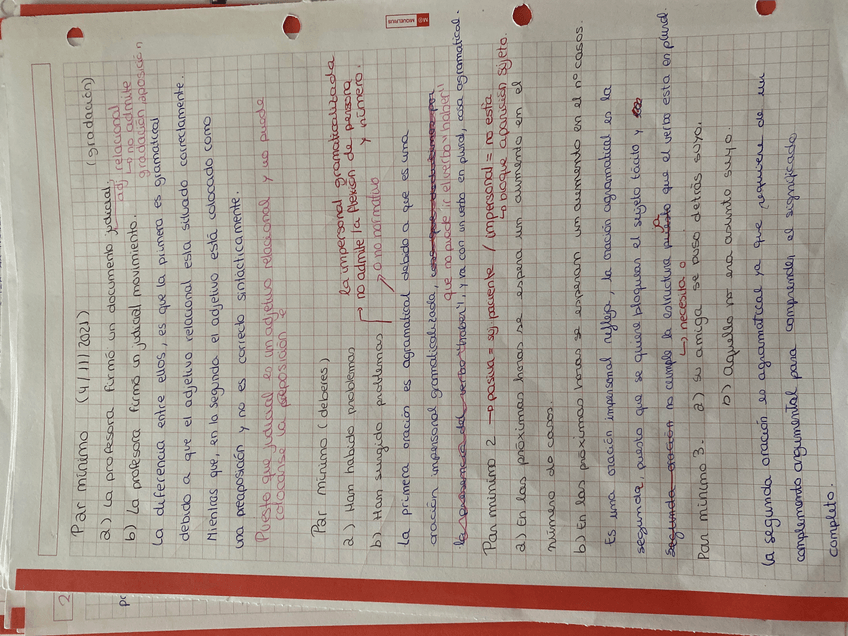 Par mínimo (4/III/2021) (gradación)
a) La profesora firmó un documento judicial. adj relacional
↳ no admite
gradación aposición
b) La profesora firmó un judicial movimiento.
La diferencia entre ellos, es que la primera es gramatical
debido a que el adjetivo relacional esta situado correctamente.
Mientras que, en la segunda el adjetivo está colocado como
una preaposición y no es correcto sintácticamente.
Puesto que judicial es un adjetivo relacional y no puede
colocarse la preposición e
Par mínimo (deberes) la impersonal gramaticalizada
a) Han habido problemas → no admite la flexión de persona
y número.
b) Han surgido problemas → o no normativo
La primera oración es agramatical debido a que es una
oración impersonal gramaticalizada,
que no puede ir el verbo "haber"
"haber", y va con un verbo en plural, cosa agramatical.
Par mínimo 2 → pasiva = suj paciente / impersonal = no esta
↳ bloque aparición sujeto
a) En las próximas horas se espera un aumento en el
número de casos.
b) En las próximas horas se esperan um aumento en el nº casos.
Es una oración impersonal refleja, la oración agramatical es la
segunda, puesto que se quiere bloquear el sujeto tácito y
segunda oración no cumple la estructura ya que el verbo esta en plural.
↳ necesita a
Par mínimo 3. a) su amiga se puso detrás suyo.
b) Aquello no era asunto suyo.
La segunda oración es agramatical ya que requiere de un
complemento argumental para comprender el significado
completo.
MIQUELRIUS
2